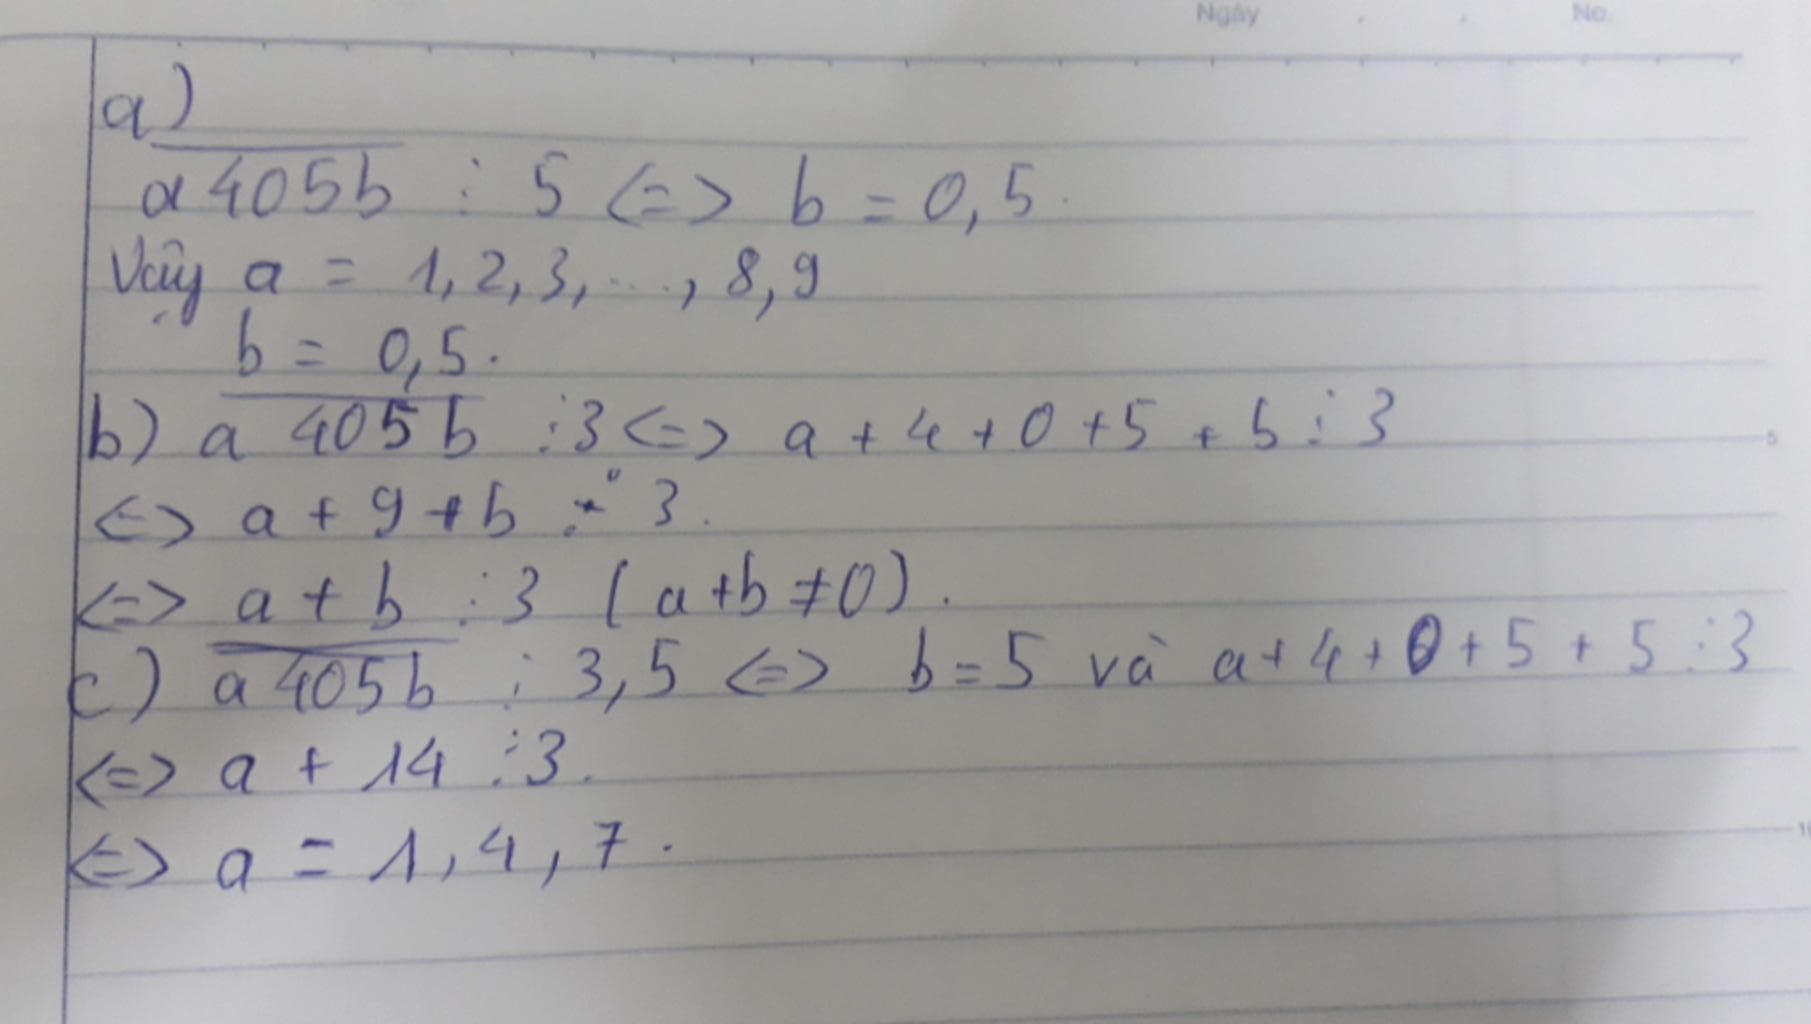 Ngày . . No.
a)
$\overline{a405b}$ ⋮ 5 <=> b = 0, 5.
Vậy a = 1, 2, 3, ..., 8, 9
b = 0, 5.
b) $\overline{a405b}$ ⋮ 3 <=> a + 4 + 0 + 5 + b ⋮ 3
<=> a + 9 + b ⋮ 3.
<=> a + b ⋮ 3 (a + b ≠ 0).
c) $\overline{a405b}$ ⋮ 3, 5 <=> b = 5 và a + 4 + 0 + 5 + 5 ⋮ 3
<=> a + 14 ⋮ 3.
<=> a = 1, 4, 7.
5
10